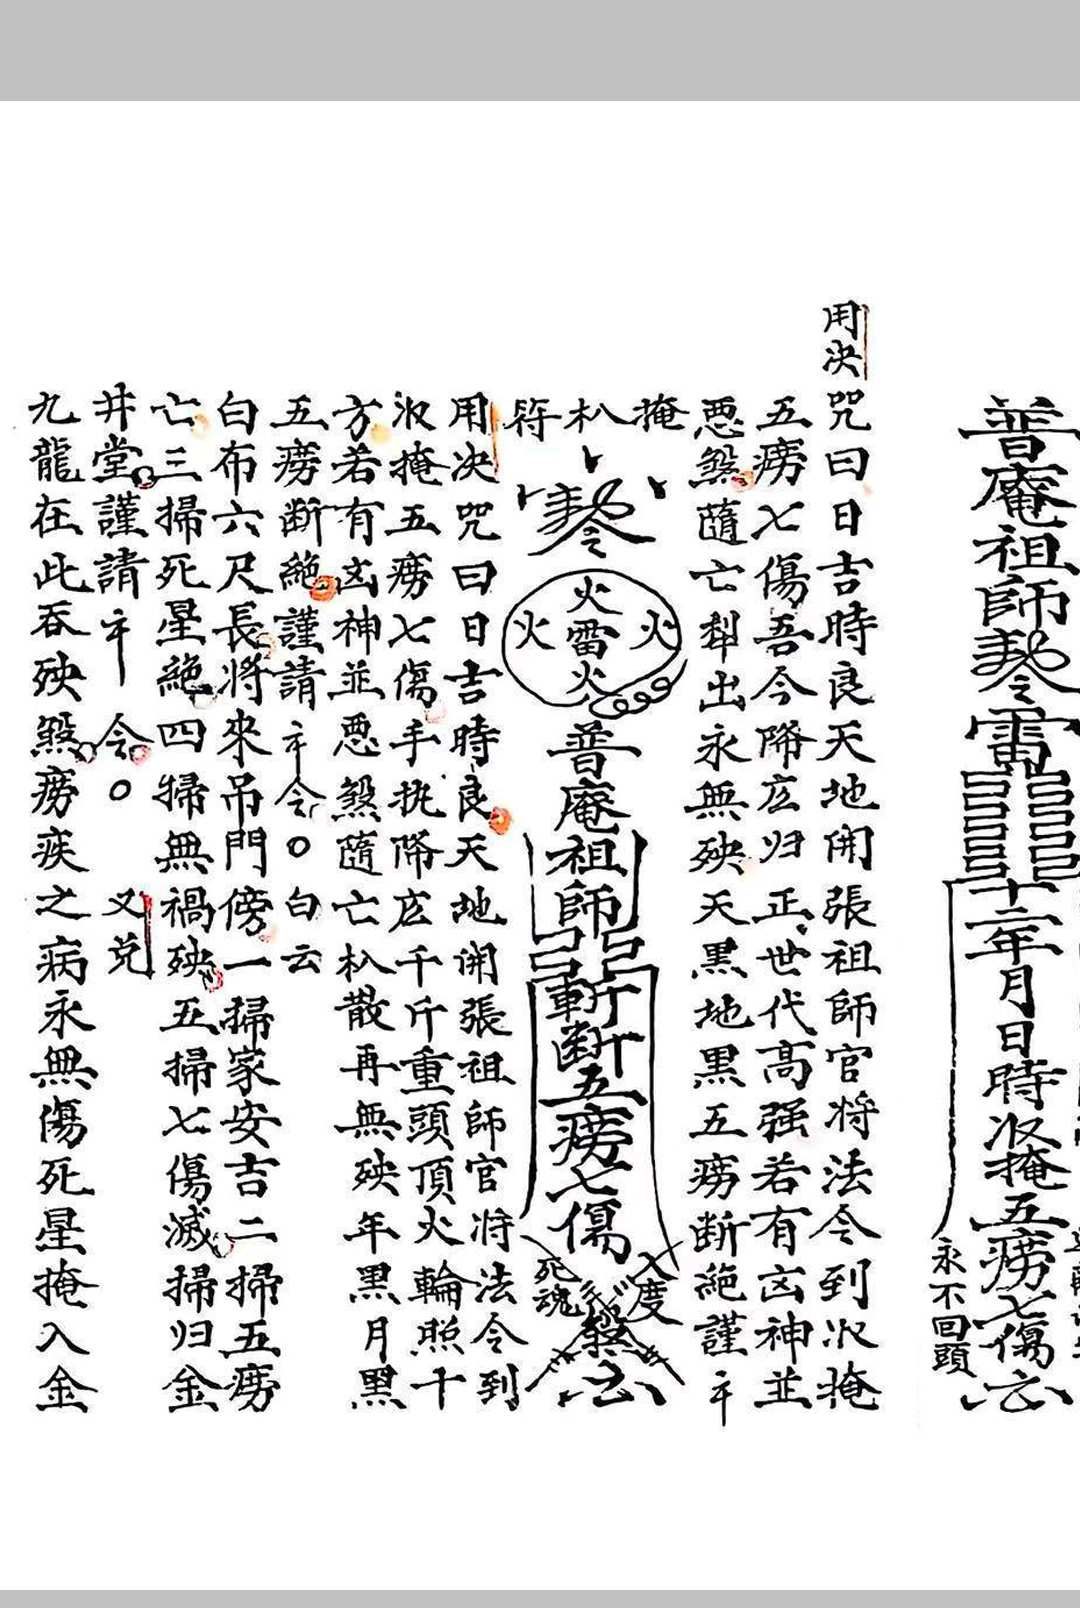 普庵祖師
雷
十二年月日時收掩五癆七傷
永不回頭
用决
咒曰日吉時良天地開張祖師官将法令到收掩
五癆七傷吾今降庄归正世代高强若有凶神並
恶煞隨亡犁出永無殃天黑地黑五癆断絶謹
掩朳符
火
火雷火
火
普庵祖師
斬断五癆七傷
死魂
入度
用决咒曰日吉時良天地開張祖師官将法令到
收掩五癆七傷手执降庄千斤重頭頂火輪照十
方若有凶神並恶煞隨亡朳散再無殃年黑月黑
五癆断絶謹請令〇白云
白布六尺長将來吊門傍一掃家安吉二掃五癆
亡三掃死星絶四掃無禍殃五掃七傷滅掃归金
井堂謹請令〇又兑
九龍在此吞殃煞癆疾之病永無傷死星掩入金